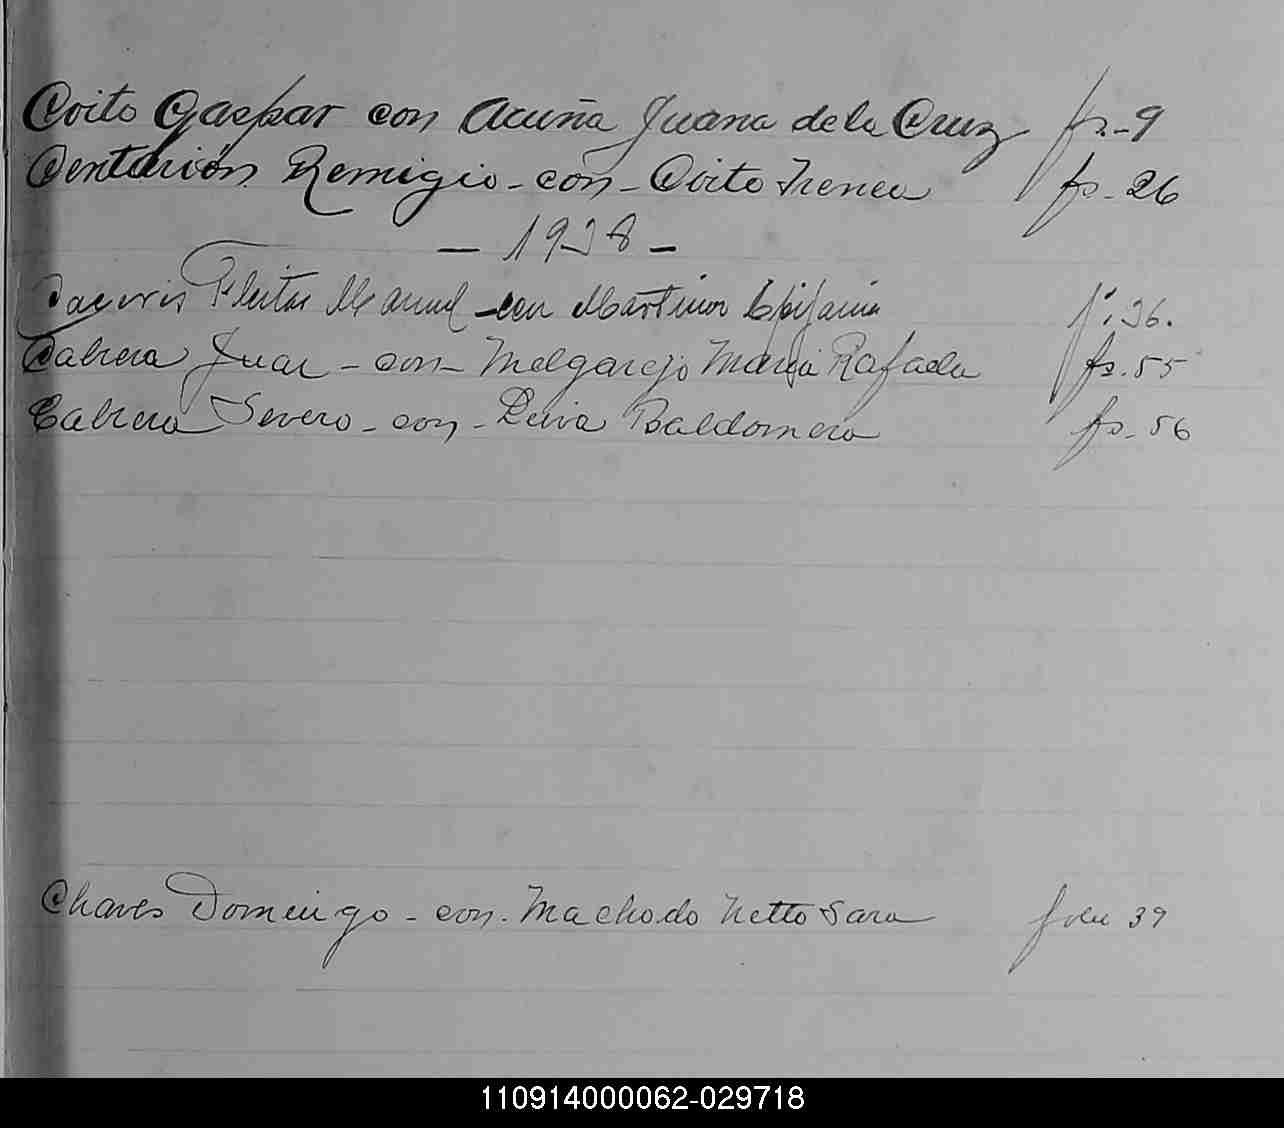 Coito Gaspar con Acuña Juana de la Cruz fs.-9
Centurión Remigio-con-Coito Irenea fs-26
- 1938 -
Fleitas Manuel-con Martinez Epifania fs. 36.
Cabrera Juan-con-Melgarejo Maria Rafaela fs.55
Cabrera Severo-con-Leiva Baldomera fs-56
Chaves Domingo-con. Machado Netto Sara folio 39
110914000062-029718